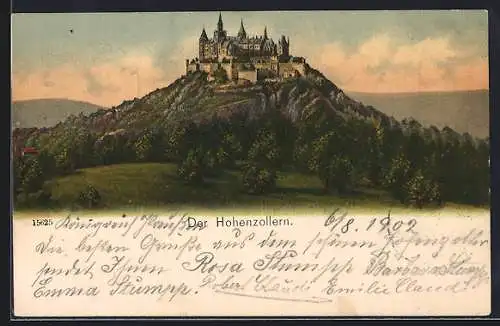 15625 Der Hohenzollern.
6/8. 1902
Die besten Grüße aus dem schönen Hohenzoller
sendet Ihnen Rosa Stumpp Barbara Stumpp
Emma Stumpp. Robert Claud Emilie Claud